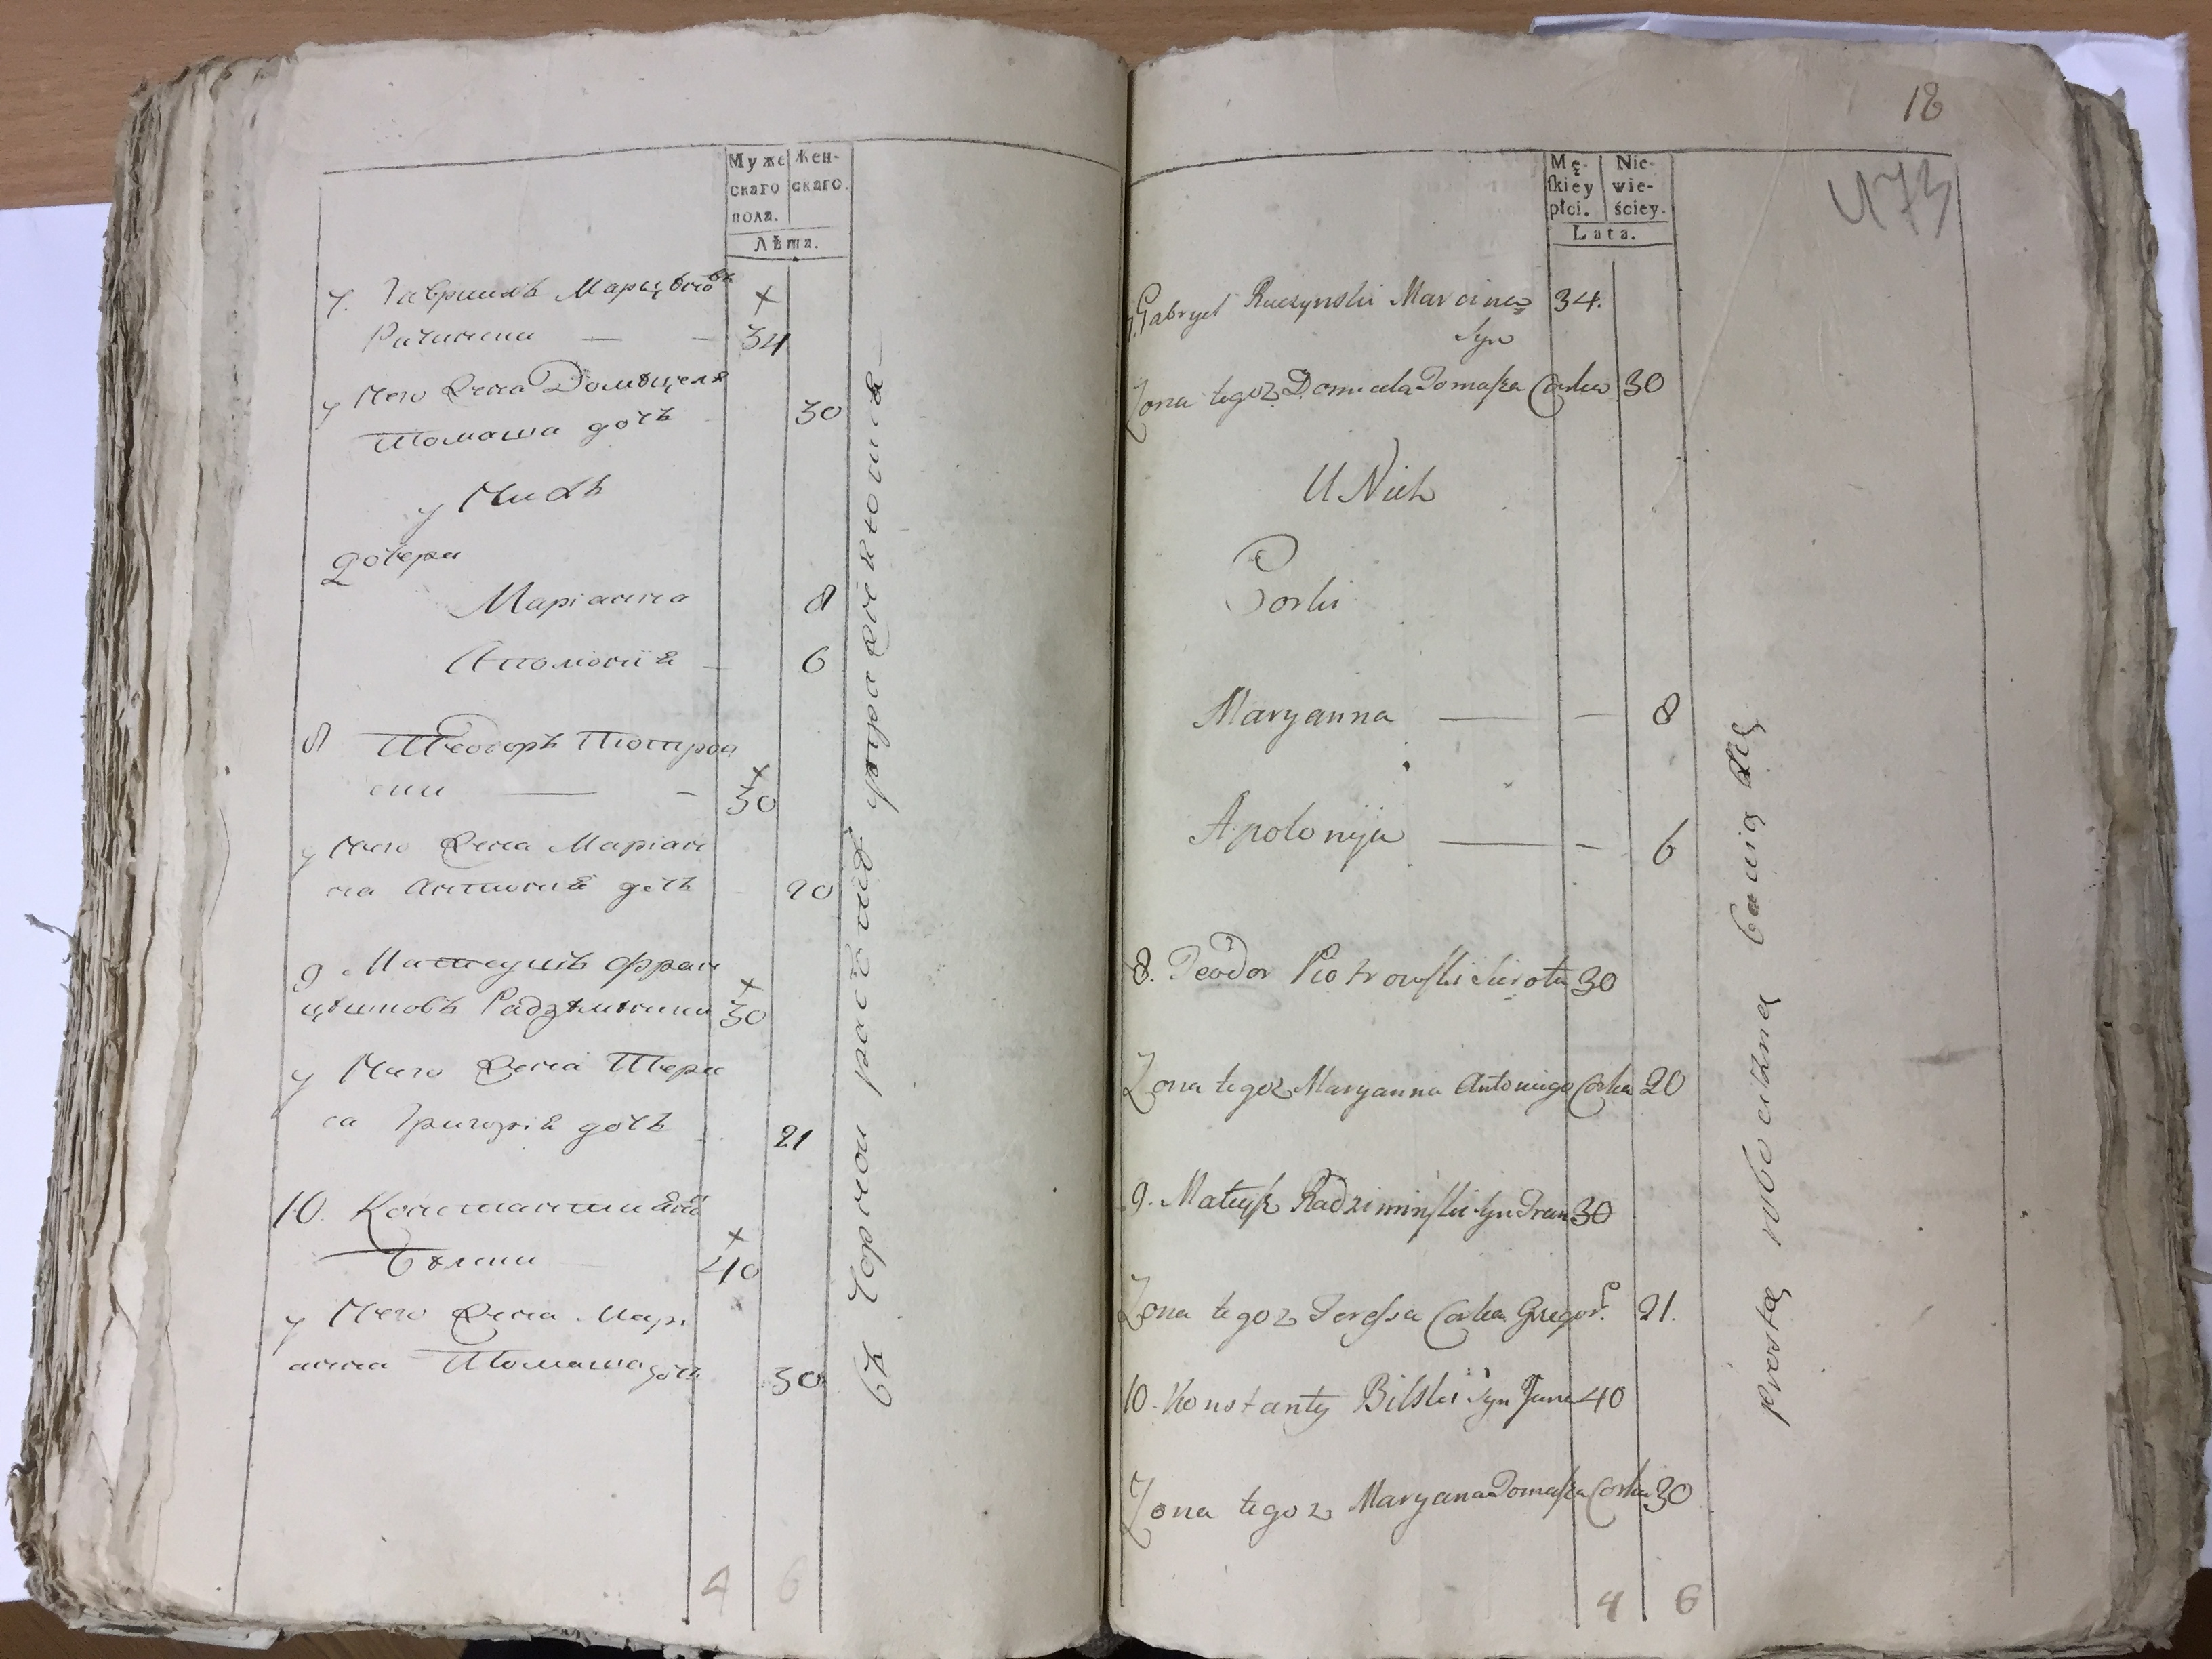 Муже
скаго
пола.
Жен-
скаго.
Лѣта.
7. Гавриилъ Марцѣновъ
Рачински — — 34
у Него Жена Домицеля
Томаша дочь 30
у Нихъ
дочери
Маріанна 8
Аполонія 6
8 Теодоръ Піотров
ски — — 30
у Него Жена Маріан
на Антонія дочь 20
9 Матеушъ Фран
цишковъ Радзѣмински 30
у Него Жена Тере
са Григорія дочь 21
10. Константый
Бѣлски 40
у Него Жена Марі
анна Томаша дочь 30
4 6
въ Чорной работѣ упражняютця
18
473
Mę-
skiey
płci.
Nie-
wie-
ściey.
Lata.
7. Gabryel Raczynski Marcina 34.
Syn
Zona tegoz Domicela Tomasza Corka 30
U Nich
Corki
Maryanna — — 8
Apolonija — — 6
8. Teodor Piotrowski Sierota 30
Zona tegoz Maryanna Antoniego Corka 20
9. Mateysz Radziminski Syn Fran 30
Zona tegoz Teressa Corka Gregor. 21.
10. Konstanty Bilski Syn Jana 40
Zona tegoz Maryana Tomasza Corka 30
4 6
Prostą robocizną bawią się